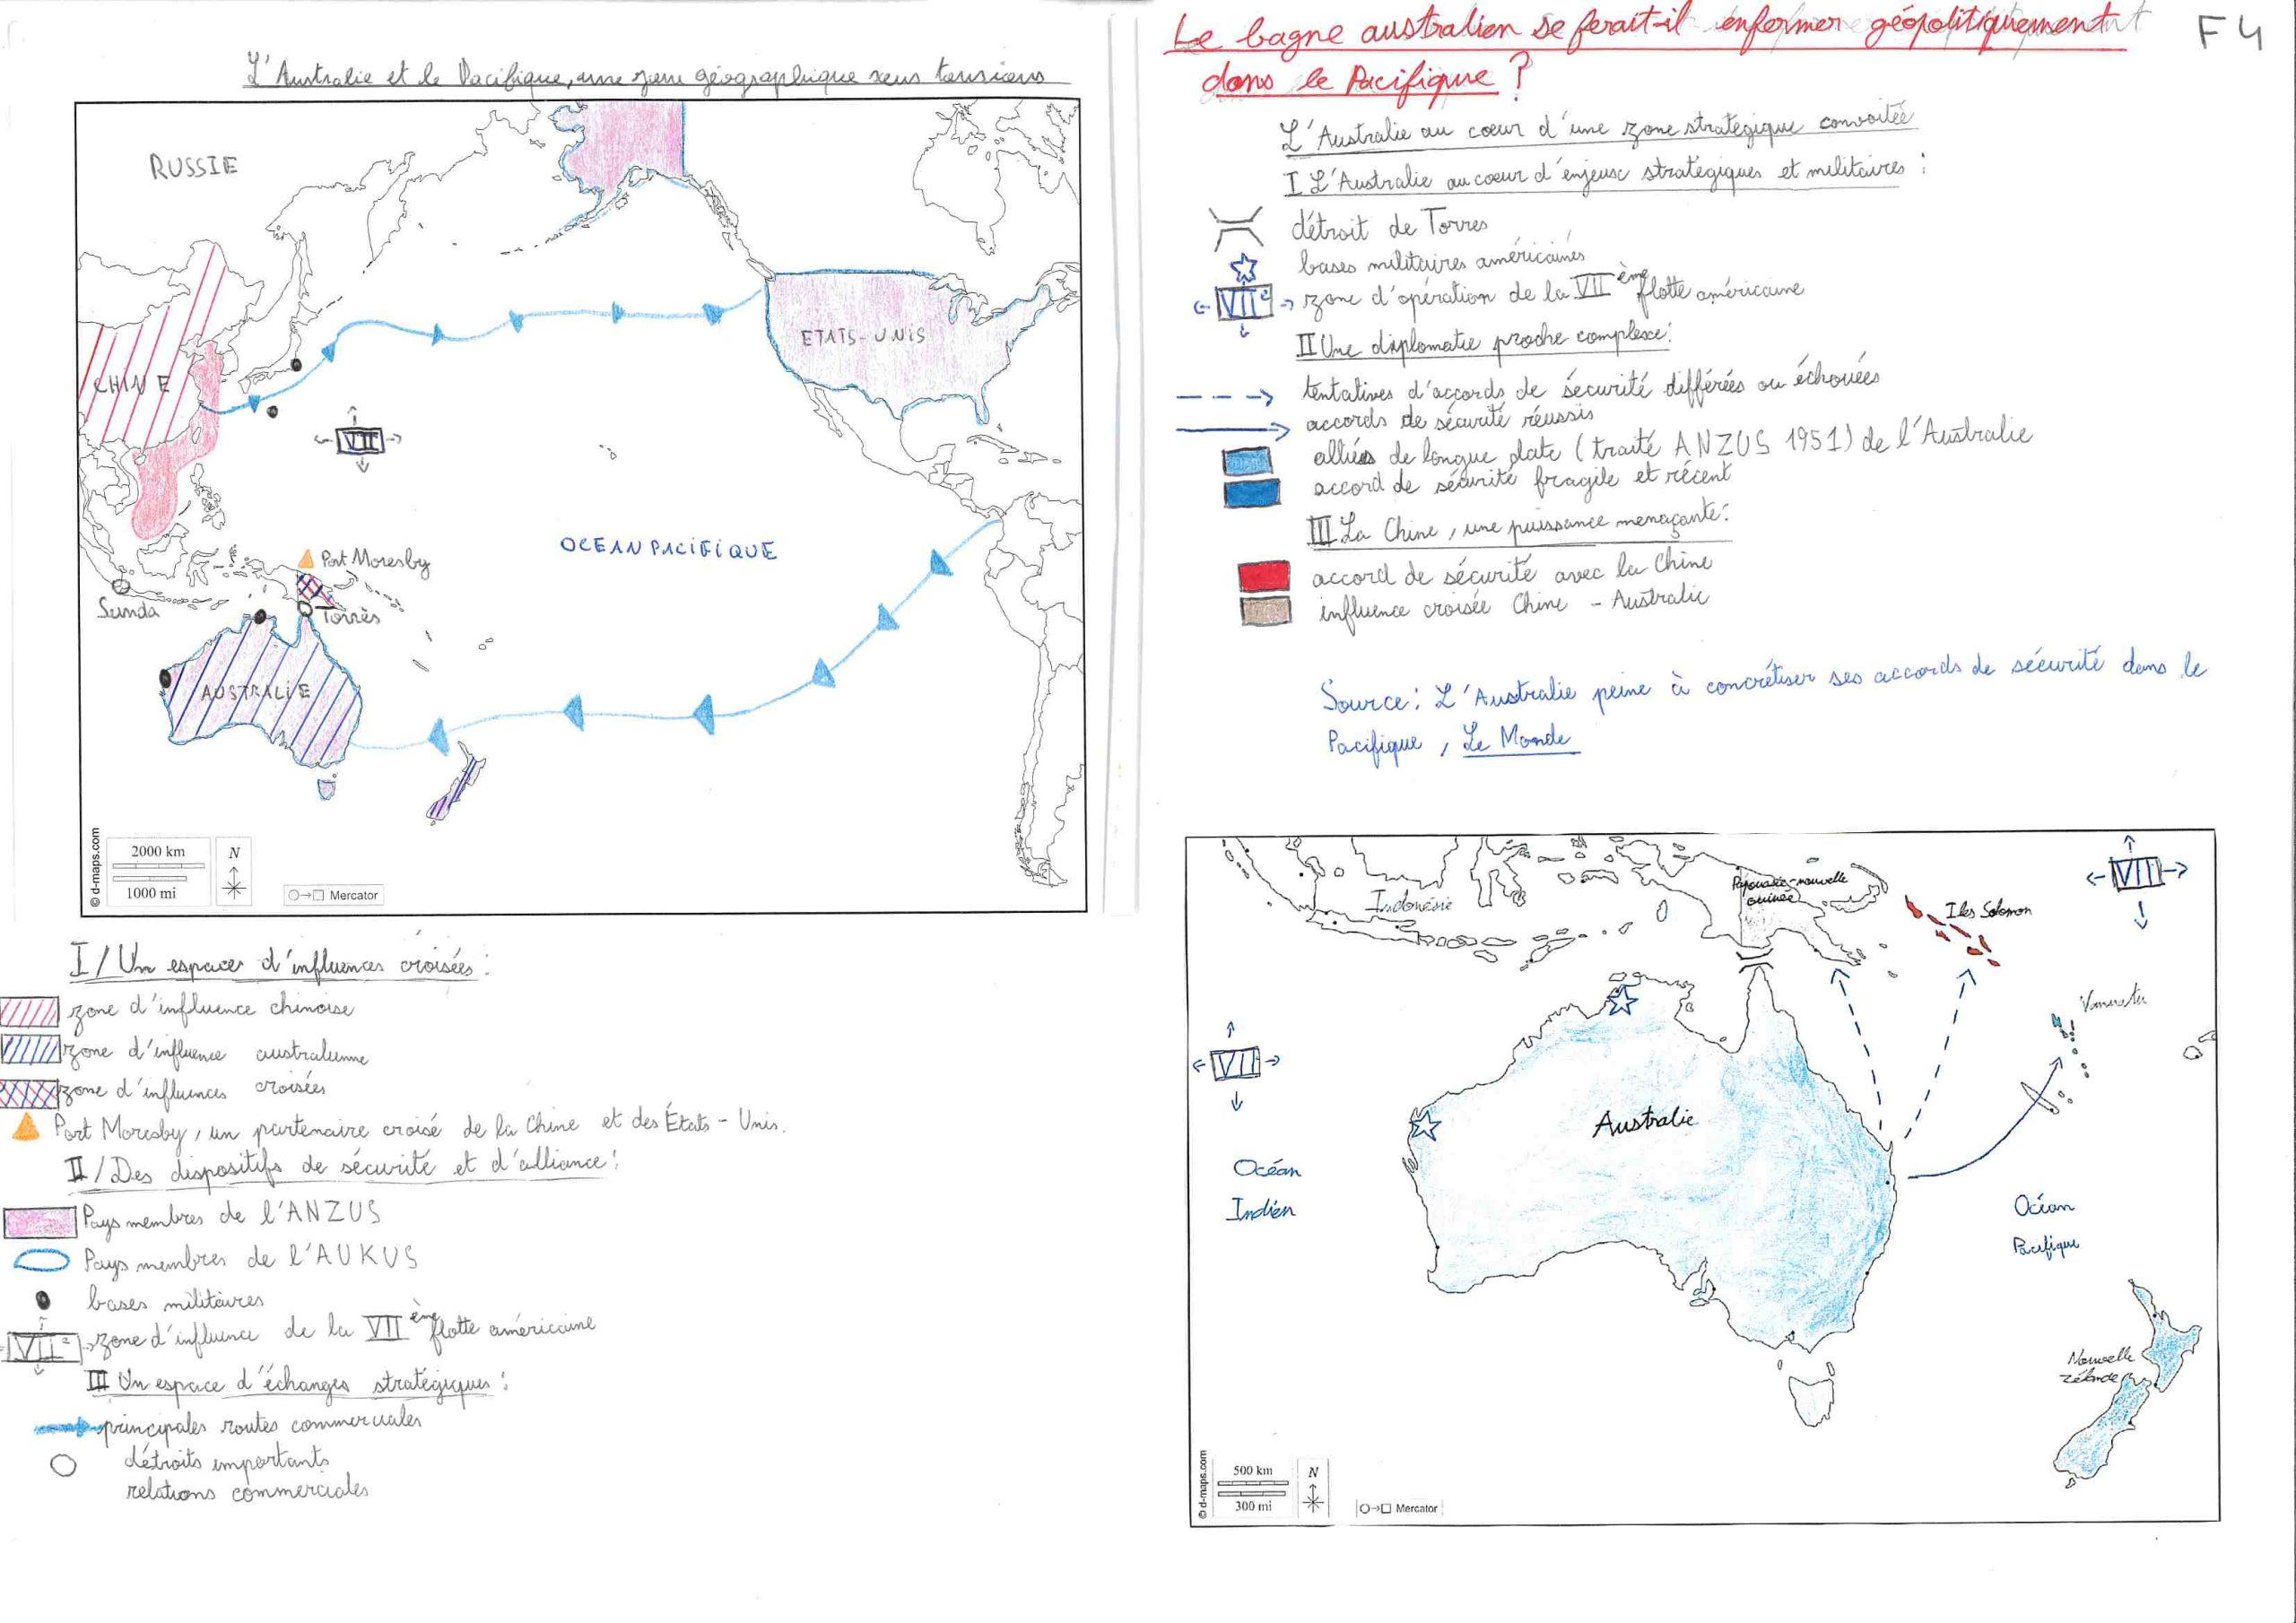 L'Australie et le Pacifique, une zone géographique sous tensions
RUSSIE
CHINE
ETATS-UNIS
VII
OCEAN PACIFIQUE
Port Moresby
Sunda
Torrès
AUSTRALIE
© d-maps.com
2000 km
1000 mi
N
Mercator
I/ Un espace d'influences croisées :
zone d'influence chinoise
zone d'influence australienne
zone d'influences croisées
Port Moresby, un partenaire croisé de la Chine et des États-Unis.
II/ Des dispositifs de sécurité et d'alliance :
Pays membres de l'ANZUS
Pays membres de l'AUKUS
bases militaires
VII e
zone d'influence de la VII ème flotte américaine
III Un espace d'échanges stratégiques :
principales routes commerciales
détroits importants
relations commerciales
Le bagne australien se ferait-il enfermer géopolitiquement
dans le Pacifique ?
F4
L'Australie au coeur d'une zone stratégique convoitée
I L'Australie au coeur d'enjeux stratégiques et militaires :
détroit de Torres
bases militaires américaines
VII e
zone d'opération de la VII ème flotte américaine
II Une diplomatie proche complexe :
tentatives d'accords de sécurité différées ou échouées
accords de sécurité réussis
alliés de longue date (traité ANZUS 1951) de l'Australie
accord de sécurité fragile et récent
III La Chine, une puissance menaçante :
accord de sécurité avec la Chine
influence croisée Chine - Australie
Source : L'Australie peine à concrétiser ses accords de sécurité dans le
Pacifique, Le Monde
Indonésie
Papouasie-nouvelle
guinée
Iles Solomon
VII
Vanuatu
VII
Australie
Océan
Indien
Océan
Pacifique
Nouvelle
zélande
© d-maps.com
500 km
300 mi
N
Mercator